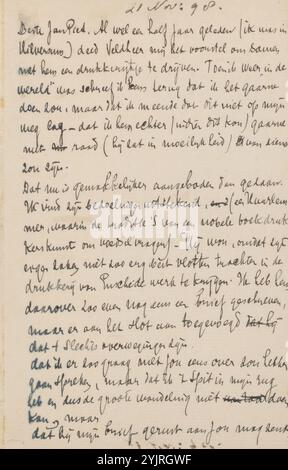 21 Nov: 98.
Beste Jan Piet. Al wel een half jaar geleden (ik was in
Hilversum) deed Veldheer mij het voorstel om samen
met hem een drukkerijtje te drijven. Toen ik weer in de
wereld was schreef ik hem terug dat ik het gaarne
doen zou, maar dat ik meende dat dit niet op mijn
weg lag – dat ik hem echter (indien dit kon) gaarne
met raad (hij zat in moeilijkheid) van dienst
zou zijn.
Dat nu is gemakkelijker aangeboden dan gedaan.
Ik vind zijn uitstekend, (een Haarlem
mer, waarin de traditie's van een nobele boekdruk
kerskunst om
erger zaken met zoo erg
drukkerij van Enschedé werk te krijgen. Ik heb hem
daarover zoo even nog eens een brief geschreven,
maar er aan het slot aan toegevoegd
dat 't slechts overwegingen zijn.
dat ik er zoo graag met jou eens over zou
gaan spreken, maar dat ik 't spit in mijn rug
heb en dus de groote wandeling niet
kan, maar
dat hij mijn brief gerust aan jou mag
alamy
Image ID: 2YJRGWF
www.alamy.com